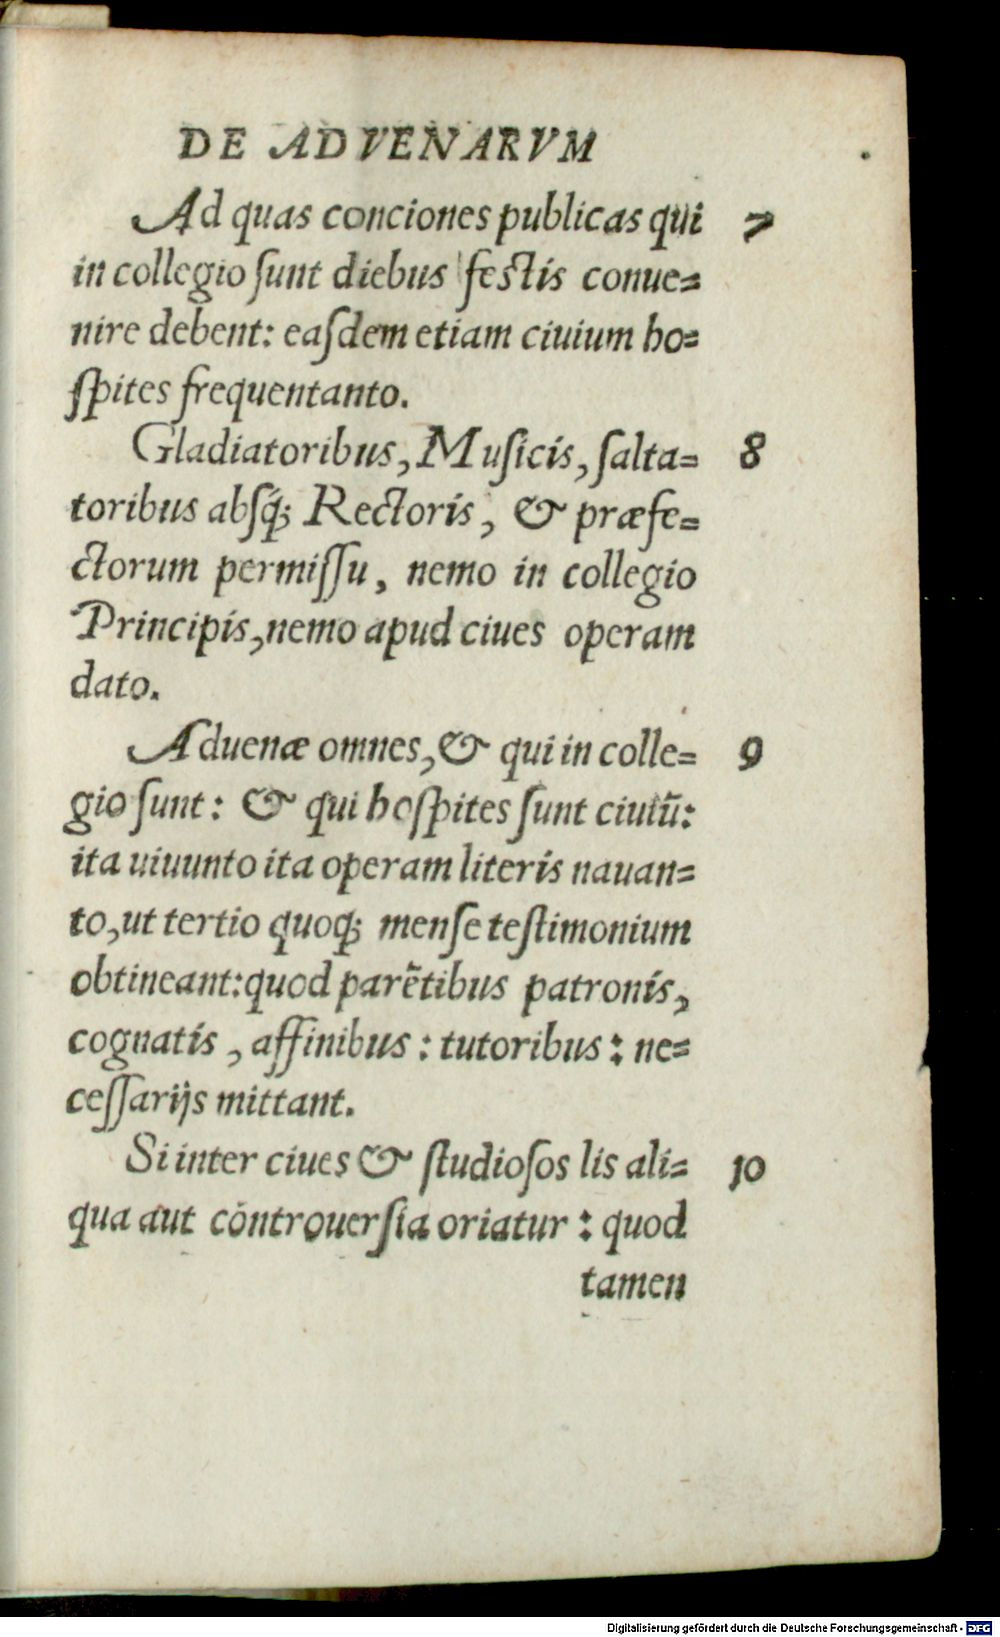 DE ADVENARVM
Ad quas conciones publicas qui 7
in collegio ſunt diebus feſtis conue=
nire debent: eaſdem etiam ciuium ho=
ſpites frequentanto.
Gladiatoribus, Muſicis, ſalta= 8
toribus abſq́; Rectoris, & præfe=
ctorum permiſſu, nemo in collegio
Principis, nemo apud ciues operam
dato.
Aduenæ omnes, & qui in colle= 9
gio ſunt: & qui hoſpites ſunt ciuiũ:
ita uiuunto ita operam literis nauan=
to, ut tertio quoq; menſe teſtimonium
obtineant: quod parẽtibus patronis,
cognatis, affinibus: tutoribus: ne=
ceſſarijs mittant.
Si inter ciues & ſtudioſos lis ali= 10
qua aut cõntrouerſia oriatur: quod
tamen
Digitalisierung gefördert durch die Deutsche Forschungsgemeinschaft - DFG